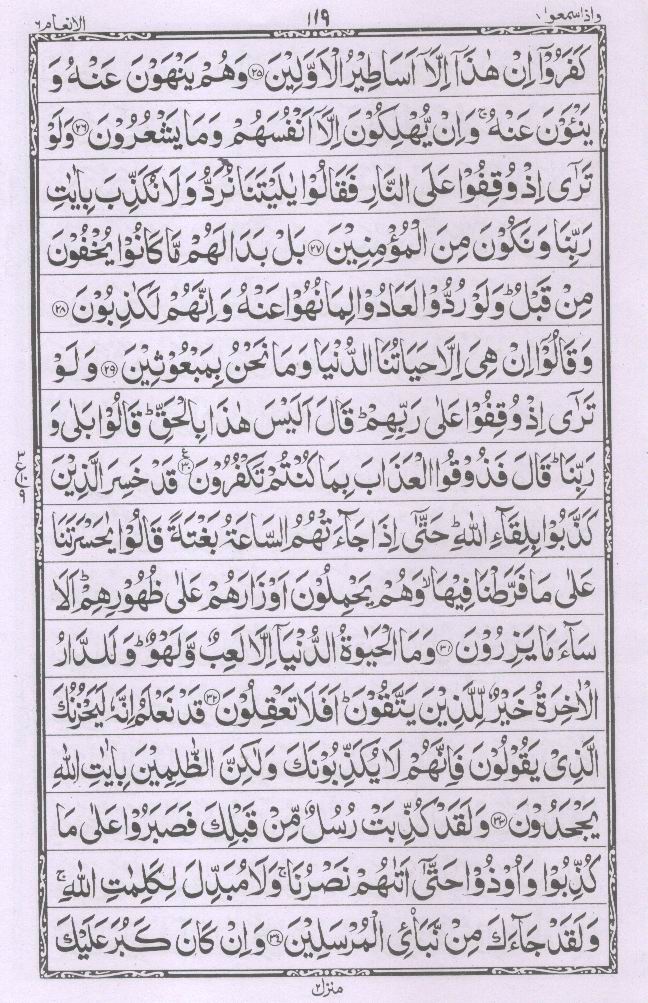 واذا سمعوا ٧ ١١٩ الانعام ٦
كَفَرُوْۤا اِنْ هٰذَاۤ اِلَّاۤ اَسَاطِیْرُ الْاَوَّلِیْنَ ۝۲۵ وَهُمْ یَنْهَوْنَ عَنْهُ وَ
یَنْـَٔوْنَ عَنْهُ ۚ وَاِنْ یُّهْلِكُوْنَ اِلَّاۤ اَنْفُسَهُمْ وَمَا یَشْعُرُوْنَ ۝۲۶ وَلَوْ
تَرٰۤی اِذْ وُقِفُوْا عَلَی النَّارِ فَقَالُوْا یٰلَیْتَنَا نُرَدُّ وَلَا نُكَذِّبَ بِاٰیٰتِ
رَبِّنَا وَنَكُوْنَ مِنَ الْمُؤْمِنِیْنَ ۝۲۷ بَلْ بَدَا لَهُمْ مَّا كَانُوْا یُخْفُوْنَ
مِنْ قَبْلُ ؕ وَلَوْ رُدُّوْا لَعَادُوْا لِمَا نُهُوْا عَنْهُ وَاِنَّهُمْ لَكٰذِبُوْنَ ۝۲۸
وَقَالُوْۤا اِنْ هِیَ اِلَّا حَیَاتُنَا الدُّنْیَا وَمَا نَحْنُ بِمَبْعُوْثِیْنَ ۝۲۹ وَلَوْ
تَرٰۤی اِذْ وُقِفُوْا عَلٰی رَبِّهِمْ ؕ قَالَ اَلَیْسَ هٰذَا بِالْحَقِّ ؕ قَالُوْا بَلٰی وَ
رَبِّنَا ؕ قَالَ فَذُوْقُوا الْعَذَابَ بِمَا كُنْتُمْ تَكْفُرُوْنَ ۝۳۰ ع قَدْ خَسِرَ الَّذِیْنَ
كَذَّبُوْا بِلِقَآءِ اللّٰهِ ؕ حَتّٰۤی اِذَا جَآءَتْهُمُ السَّاعَةُ بَغْتَةً قَالُوْا یٰحَسْرَتَنَا
عَلٰی مَا فَرَّطْنَا فِیْهَا ۙ وَهُمْ یَحْمِلُوْنَ اَوْزَارَهُمْ عَلٰی ظُهُوْرِهِمْ ؕ اَلَا
سَآءَ مَا یَزِرُوْنَ ۝۳۱ وَمَا الْحَیٰوةُ الدُّنْیَاۤ اِلَّا لَعِبٌ وَّلَهْوٌ ؕ وَلَلدَّارُ
الْاٰخِرَةُ خَیْرٌ لِّلَّذِیْنَ یَتَّقُوْنَ ؕ اَفَلَا تَعْقِلُوْنَ ۝۳۲ قَدْ نَعْلَمُ اِنَّهٗ لَیَحْزُنُكَ
الَّذِیْ یَقُوْلُوْنَ فَاِنَّهُمْ لَا یُكَذِّبُوْنَكَ وَلٰكِنَّ الظّٰلِمِیْنَ بِاٰیٰتِ اللّٰهِ
یَجْحَدُوْنَ ۝۳۳ وَلَقَدْ كُذِّبَتْ رُسُلٌ مِّنْ قَبْلِكَ فَصَبَرُوْا عَلٰی مَا
كُذِّبُوْا وَاُوْذُوْا حَتّٰۤی اَتٰىهُمْ نَصْرُنَا ۚ وَلَا مُبَدِّلَ لِكَلِمٰتِ اللّٰهِ ۚ
وَلَقَدْ جَآءَكَ مِنْ نَّبَاِی الْمُرْسَلِیْنَ ۝۳۴ وَاِنْ كَانَ كَبُرَ عَلَیْكَ
منزل ٢